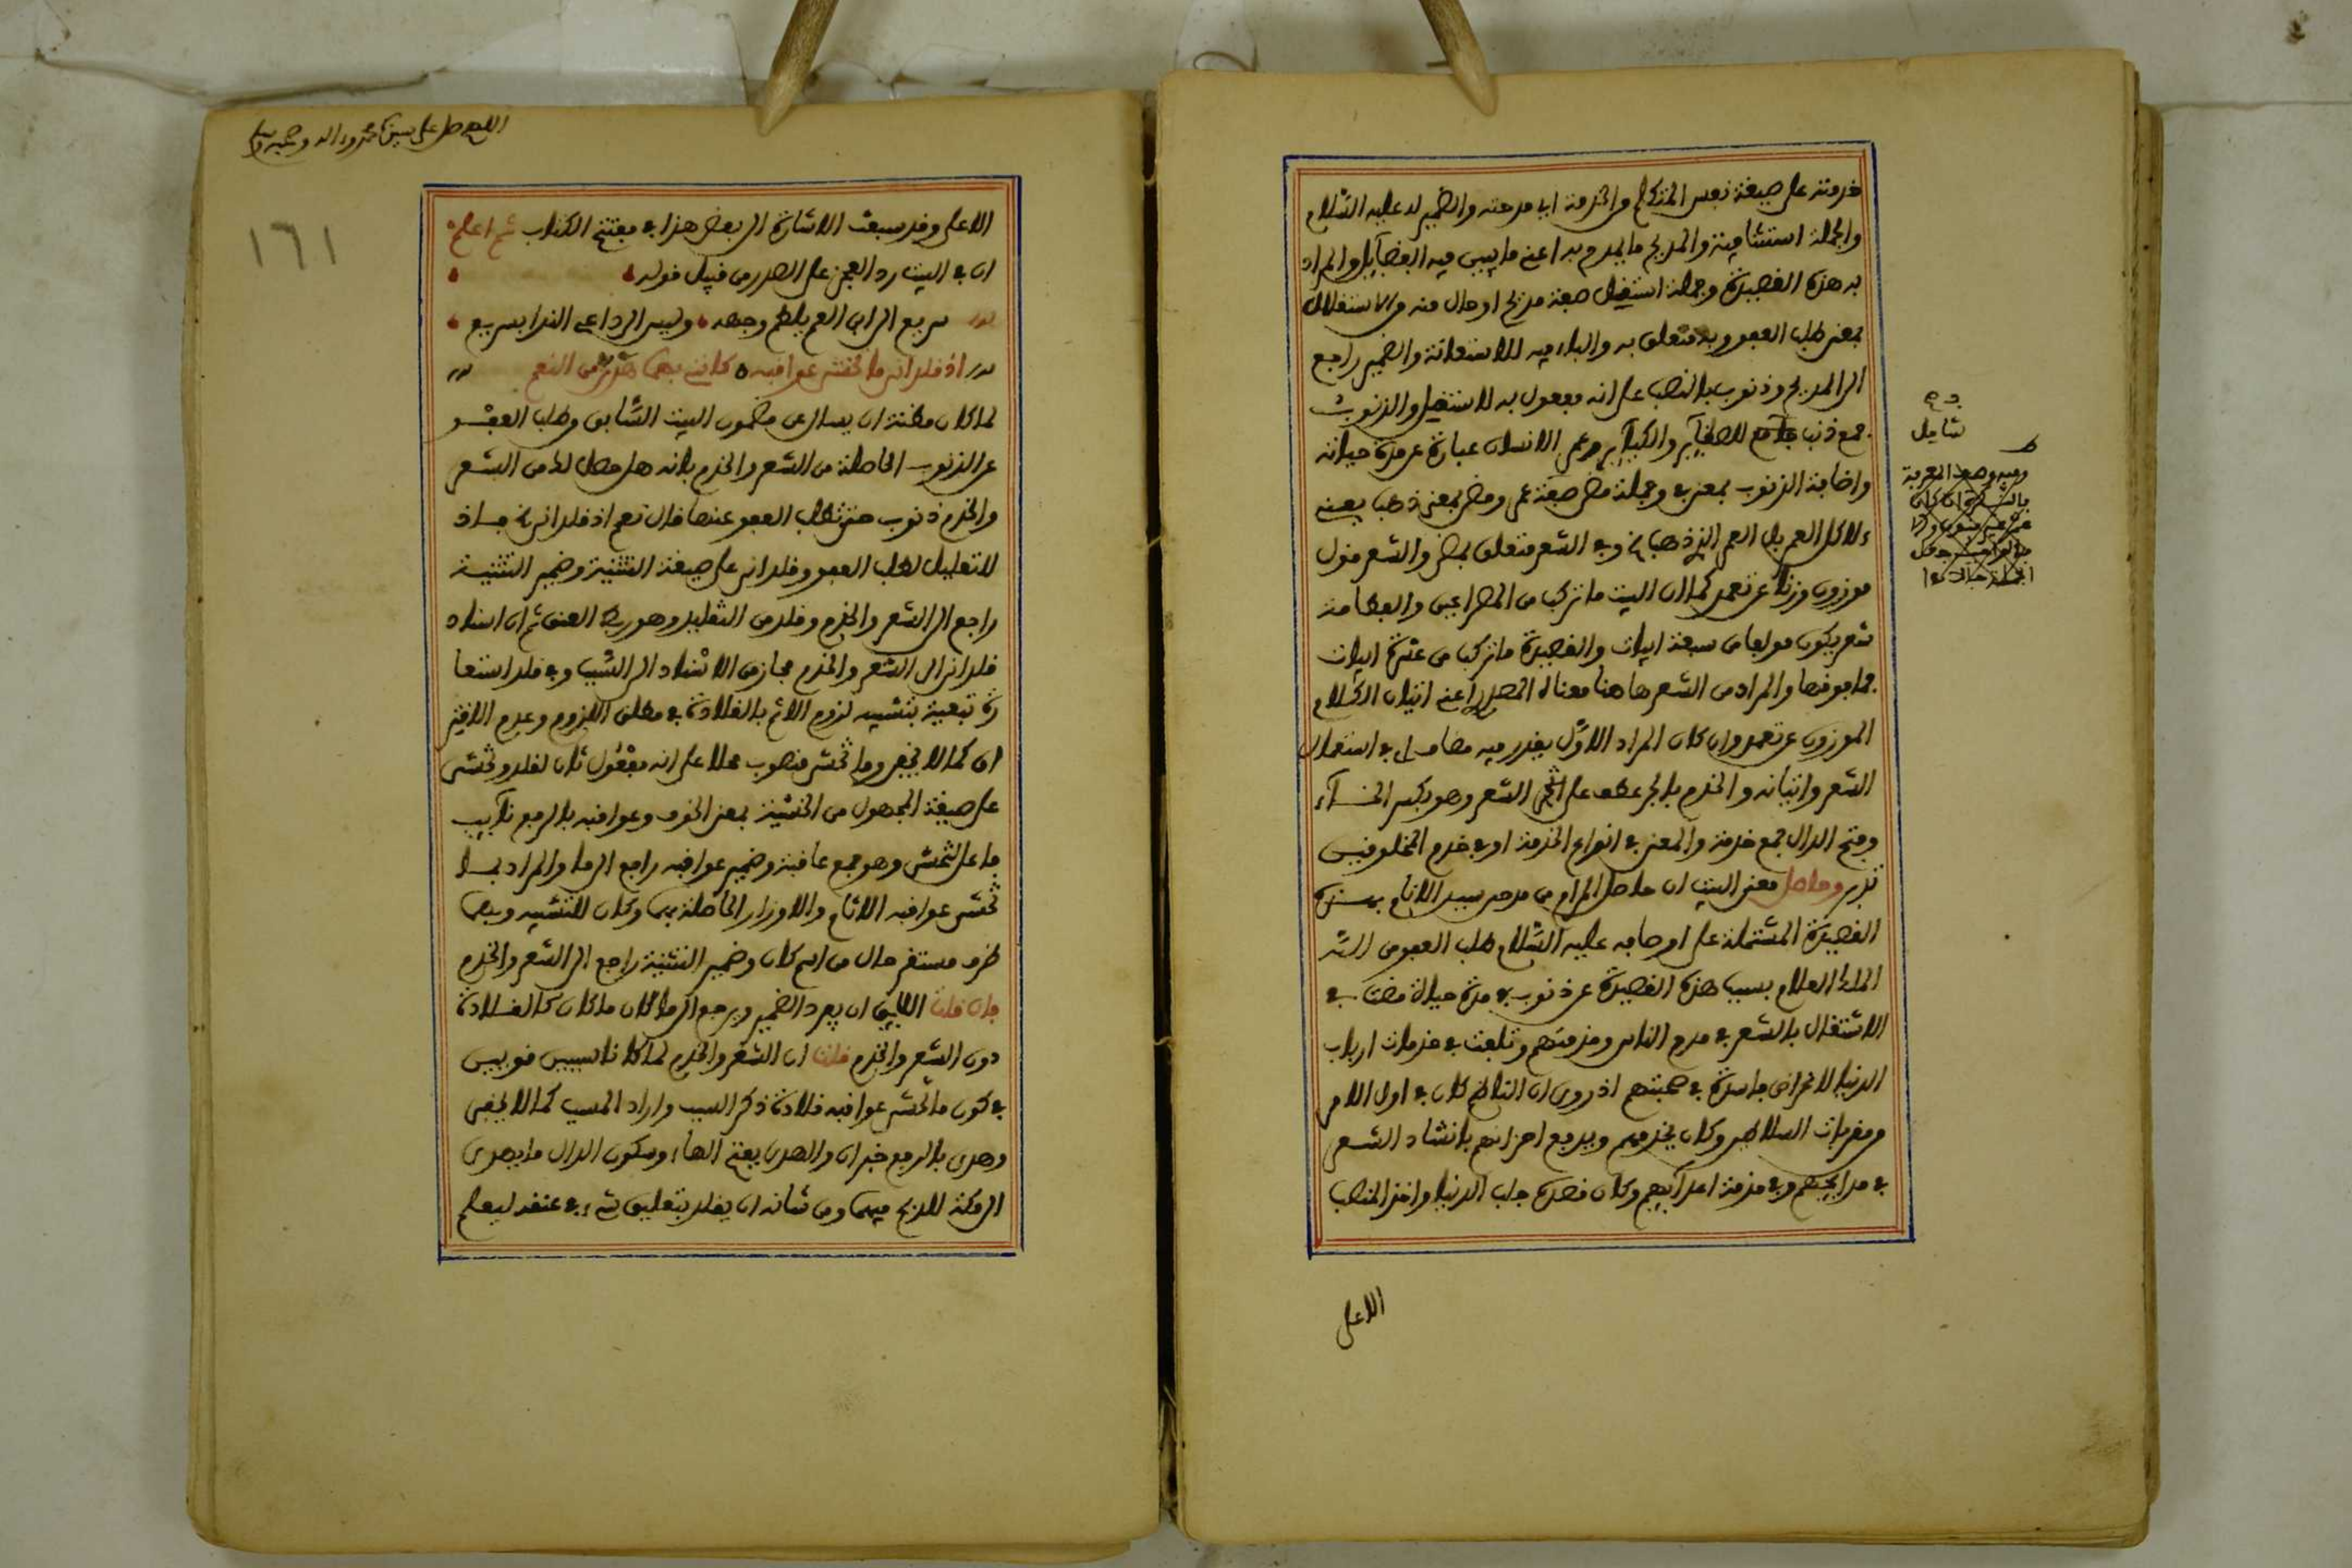 خدمته على صيغة نفس المتكلم والخدمة اي مدحته والضمير له عليه السّلام
والجملة استئنافية والمديح ما يمدح به اعني ما يبين فيه الفضآئل والمراد
به هذه القصيدة وجملة استقيل صفة مديح او حال منه والاستقلال
بمعنى طلب العفو وبه متعلق به والباء فيه للاستعانة والضمير راجع
الى المديح وذنوب بالنصب على انه مفعول به لاستقيل والذنوب
جمع ذنب للصغآئر والكبآئر وعمر الانسان عبارة عن مدة حياته
واضافة الذنوب بمعنى في وجملة مضى صفة عمر ومضى بمعنى ذهب يعني
لا كل العمر بل العمر الذي ذهب وفي الشعر متعلق بمضى والشعر قول
موزون وزنا عن تعمد كما ان البيت ما تركب من المصراعين والقطامة
شعر يكون مولفا من سبعة ابيات والقصيدة ما تركب من عشرة ابيات
فما فوقها والمراد من الشعر ها هنا معناه المصدر اعني اتيان الكلام
الموزون عن تعمد وان كان المراد الاوّل يقدر فيه مضاف اي في استعمال
الشعر واتيانه والخدم بالجر عطف على الشعر وهو بكسر الخآء
وفتح الدال جمع خدمة والمعنى في انواع الخدمة او في خدم المخلوقين
تدبر وحاصل معنى البيت ان حاصل المرام من مدح سيد الانام بهذه
القصيدة المشتملة على اوصافه عليه السّلام طلب العفو من الله
الملك العلام بسبب هذه القصيدة عن ذنوب في مدة حياة مضت في
الاشتغال بالشعر في مدح الناس وخدمتهم وتلفت في خدمات ارباب
الدنيا لاغراض فاسدة في صحبتهم اذ روي ان الناظم كان في اول الامر
من مقربات السلاطين وكان يخدمهم ويدفع احزانهم بانشاد الشعر
في مدايحهم وفي مذمة اعدآئهم وكان قصده جلب الدنيا واخذ المنصب
الاعلى
شامل
اللهم صل على سيدنا محمد واله وصحبه وسلم
١٦١
الاعلى وقد سبقت الاشارة الى بعض هذا في مفتتح الكتاب ثم اعلم
ان في البيت رد العجز على الصدر من قبيل قوله
سريع الى ابن العم يلطم وجهه وليس الى داعي الندا بسريع
اذ قلداني ما تخشى عواقبه كانني بهما هدي من النعم
لما كان مظنة ان يسال عن مضمون البيت السّابق وطلب العفو
عن الذنوب الحاصلة من الشعر والخدم بانه هل حصل لك من الشعر
والخدم ذنوب حتى تطلب العفو عنها قال نعم اذ قلداني فاذ
للتعليل لطلب العفو وقلداني على صيغة التثنية وضمير التثنية
راجع الى الشعر والخدم وقلد من التقليد وهو ربط العنق ثم ان اسناد
قلداني الى الشعر والخدم مجاز من الاسناد الى السّبب وفي قلد استعا
رة تبعية بتشبيه لزوم الاثم بالقلادة في مطلق اللزوم وعدم
كما لا يخفى وما تخشى منصوب محلا على انه مفعول ثان لقلد وتخشى
على صيغة المجهول من الخشية بمعنى الخوف وعواقبه بالرفع نآئب
فاعل تخشى وهو جمع عاقبة وضمير عواقبه راجع الى ما والمراد بما
تخشى عواقبه الاثام والاوزار الحاصلة بهما وكان للتشبيه وبهما
ظرف مستقر حال من اسم كان وضمير التثنية راجع الى الشعر والخدم
فان قلت اللايق ان يفرد الضمير ويرجع الى ما لان ما كان كالقلادة
دون الشعر والخدم قلت ان الشعر والخدم لما كانا سببين قويين
في كون ما تخشى عواقبه قلادة ذكر السبب واراد المسبب كما لا يخفى
وهدي بالرفع خبر ان والهدي بفتح الهاء وسكون الدال ما يهدى
الى مكة للذبح فيها ومن شانه ان يقلد بتعليق شيء في عنقه ليعلم